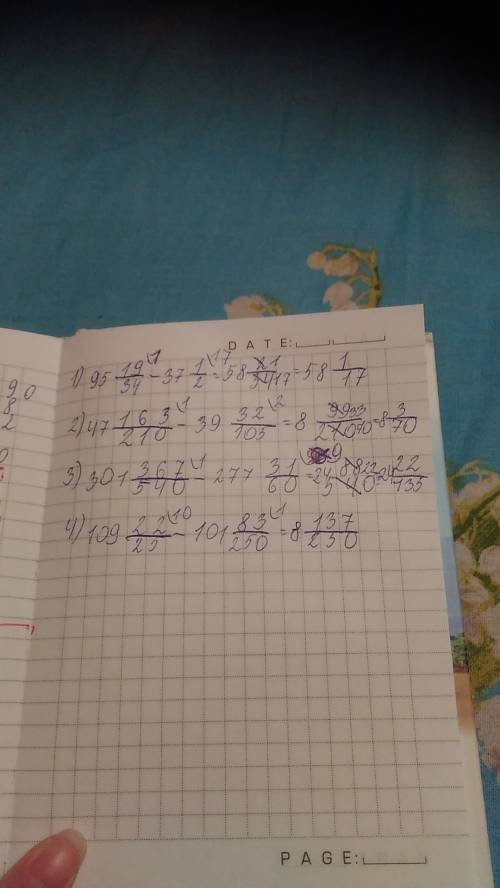 DATE:
1) 95 19/34 \1 - 37 1/2 \17 = 58 2 1/34 17 = 58 1/17
2) 47 163/210 \1 - 39 32/105 \2 = 8 99 33/210 70 = 8 3/70
3) 301 367/540 \1 - 277 31/60 \9 = 24 88 22/540 = 24 22/135
4) 109 22/25 \10 - 101 83/250 \1 = 8 137/250
PAGE:
90
8
2
0